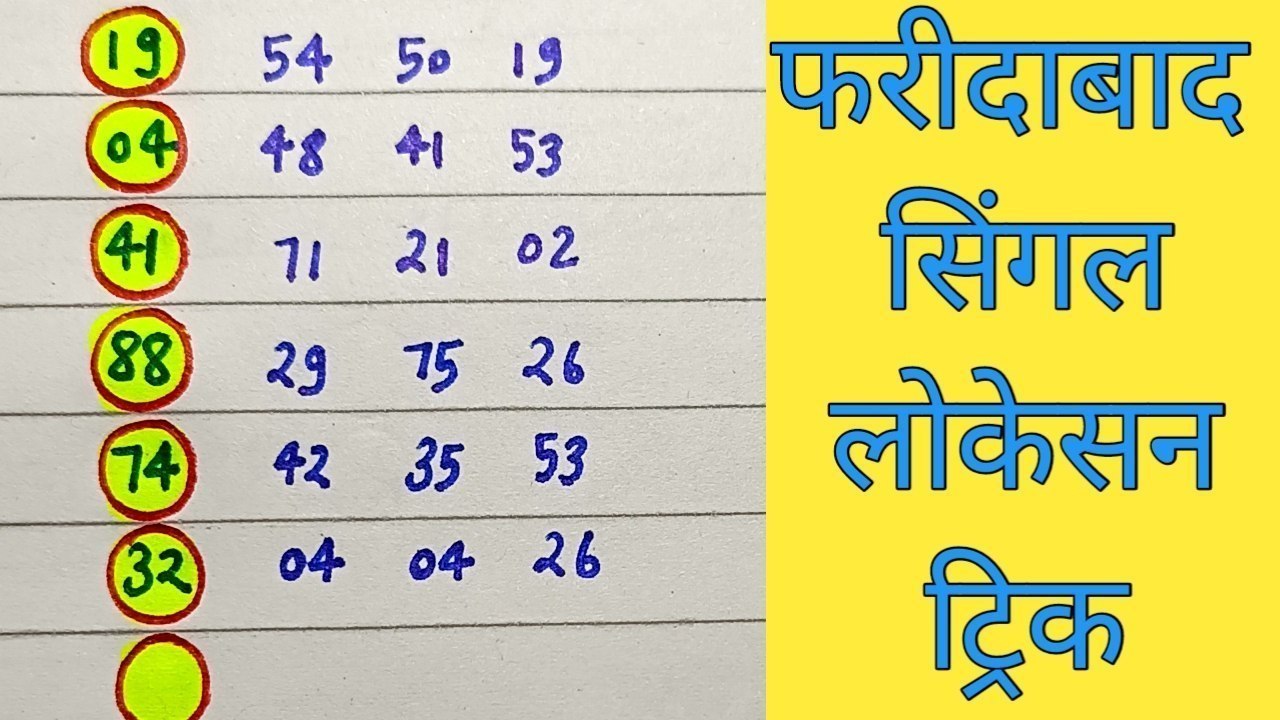 19 54 50 19
04 48 41 53
41 71 21 02
88 29 75 26
74 42 35 53
32 04 04 26
फरीदाबाद
सिंगल
लोकेसन
ट्रिक